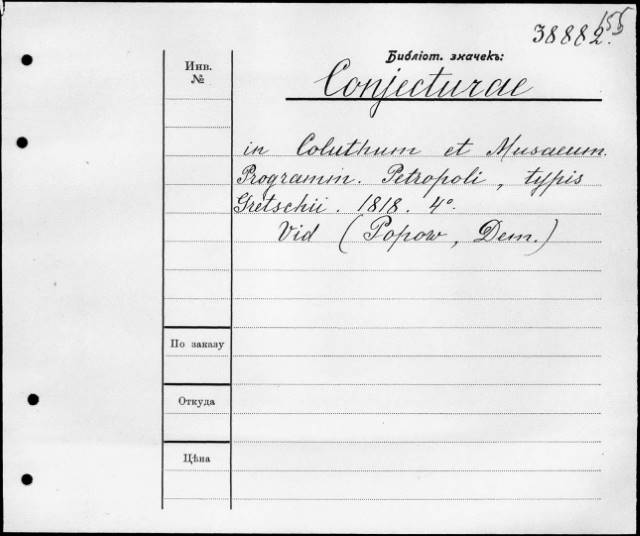 38882.
155
Библіот. значекъ:
Инв.
№
Conjecturae
in Coluthum et Musaeum.
Programm. Petropoli, typis
Gretschii. 1818. 4°.
Vid (Popow, Dem.)
По заказу
Откуда
Цѣна